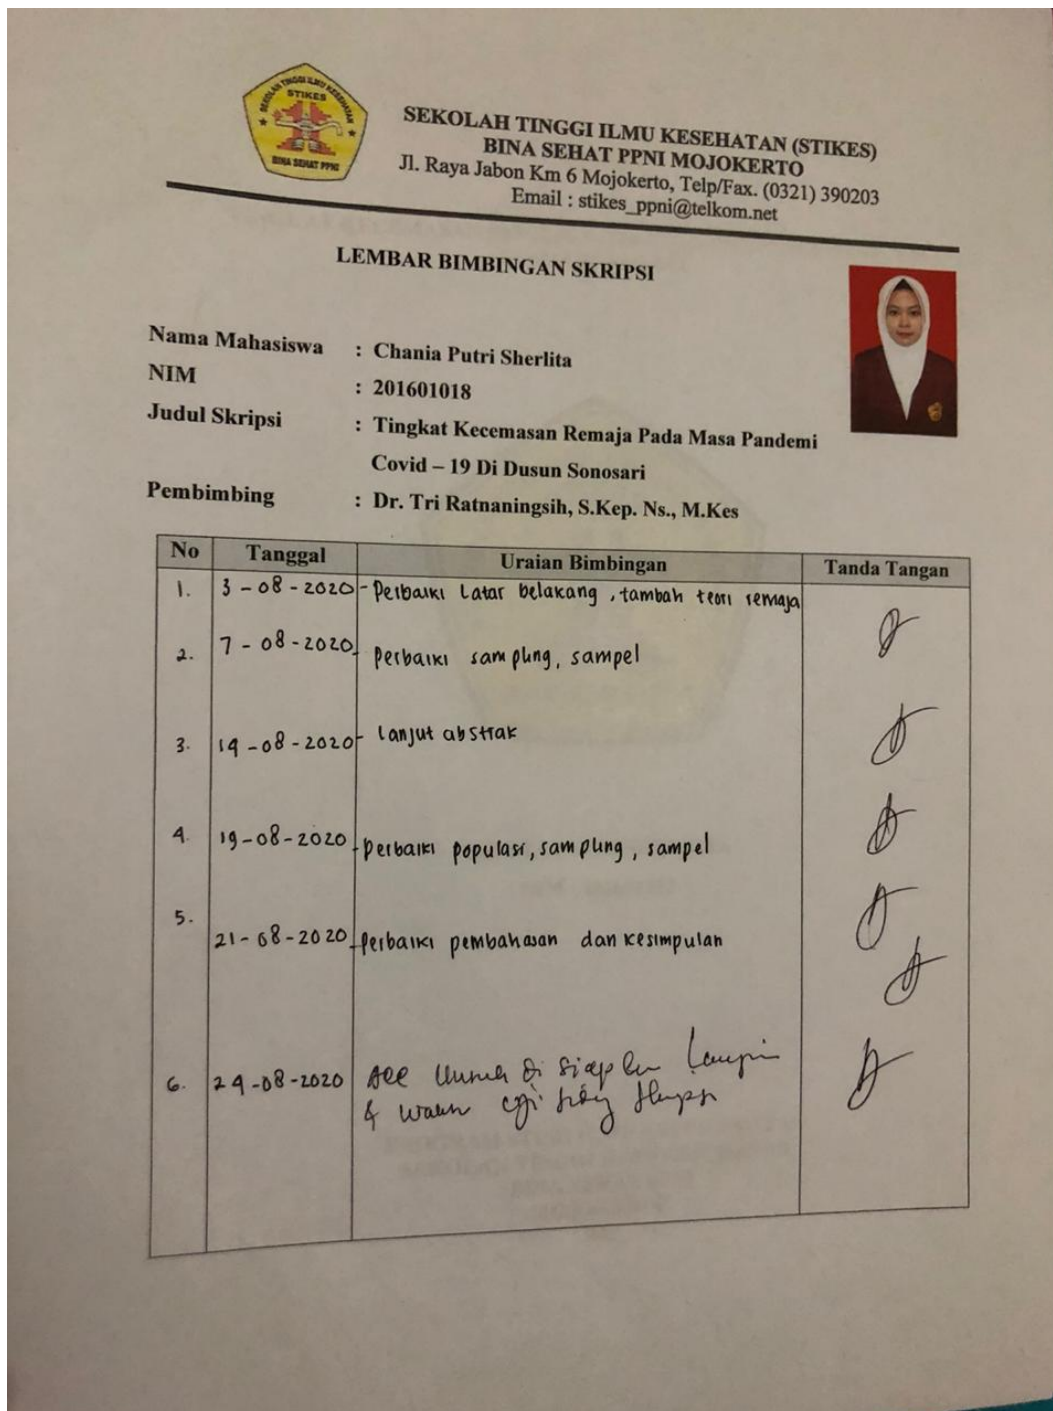 SEKOLAH TINGGI ILMU KESEHATAN
STIKES
BINA SEHAT PPNI
SEKOLAH TINGGI ILMU KESEHATAN (STIKES)
BINA SEHAT PPNI MOJOKERTO
Jl. Raya Jabon Km 6 Mojokerto, Telp/Fax. (0321) 390203
Email : stikes_ppni@telkom.net
LEMBAR BIMBINGAN SKRIPSI
Nama Mahasiswa : Chania Putri Sherlita
NIM : 201601018
Judul Skripsi : Tingkat Kecemasan Remaja Pada Masa Pandemi
Covid – 19 Di Dusun Sonosari
Pembimbing : Dr. Tri Ratnaningsih, S.Kep. Ns., M.Kes
No Tanggal Uraian Bimbingan Tanda Tangan
1. 3 - 08 - 2020 - Perbaiki Latar belakang, tambah teori remaja
2. 7 - 08 - 2020 - Perbaiki sampling, sampel
3. 14 - 08 - 2020 - Lanjut abstrak
4. 19 - 08 - 2020 - perbaiki populasi, sampling, sampel
5. 21 - 08 - 2020 - Perbaiki pembahasan dan kesimpulan
6. 24 - 08 - 2020 Acc di siapkan
&